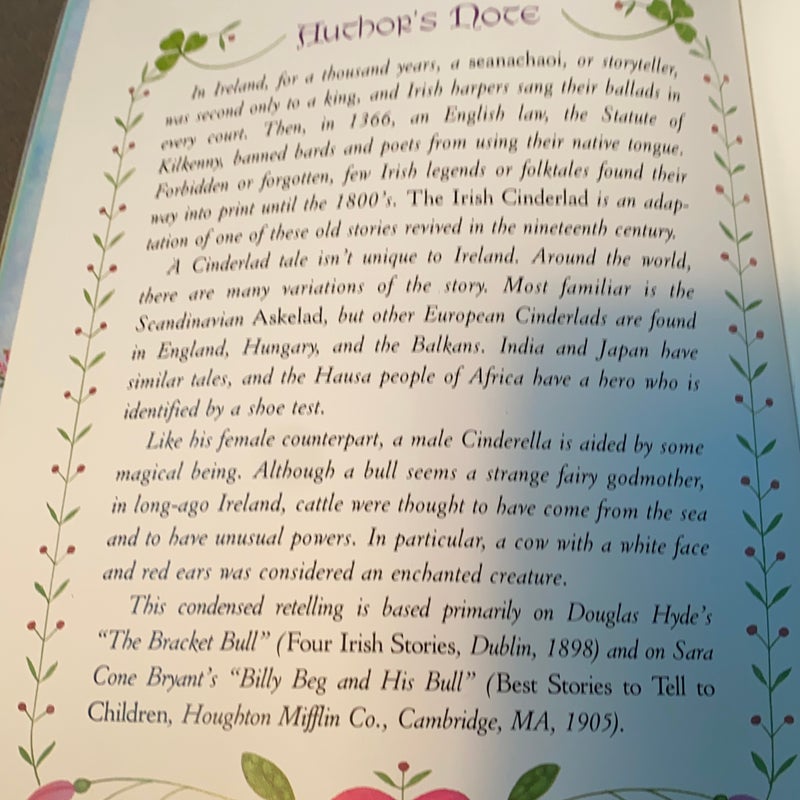 Author's Note
In Ireland, for a thousand years, a seanachaoi, or storyteller,
was second only to a king, and Irish harpers sang their ballads in
every court. Then, in 1366, an English law, the Statute of
Kilkenny, banned bards and poets from using their native tongue.
Forbidden or forgotten, few Irish legends or folktales found their
way into print until the 1800's. The Irish Cinderlad is an adap-
tation of one of these old stories revived in the nineteenth century.
A Cinderlad tale isn't unique to Ireland. Around the world,
there are many variations of the story. Most familiar is the
Scandinavian Askelad, but other European Cinderlads are found
in England, Hungary, and the Balkans. India and Japan have
similar tales, and the Hausa people of Africa have a hero who is
identified by a shoe test.
Like his female counterpart, a male Cinderella is aided by some
magical being. Although a bull seems a strange fairy godmother,
in long-ago Ireland, cattle were thought to have come from the sea
and to have unusual powers. In particular, a cow with a white face
and red ears was considered an enchanted creature.
This condensed retelling is based primarily on Douglas Hyde's
"The Bracket Bull" (Four Irish Stories, Dublin, 1898) and on Sara
Cone Bryant's "Billy Beg and His Bull" (Best Stories to Tell to
Children, Houghton Mifflin Co., Cambridge, MA, 1905).